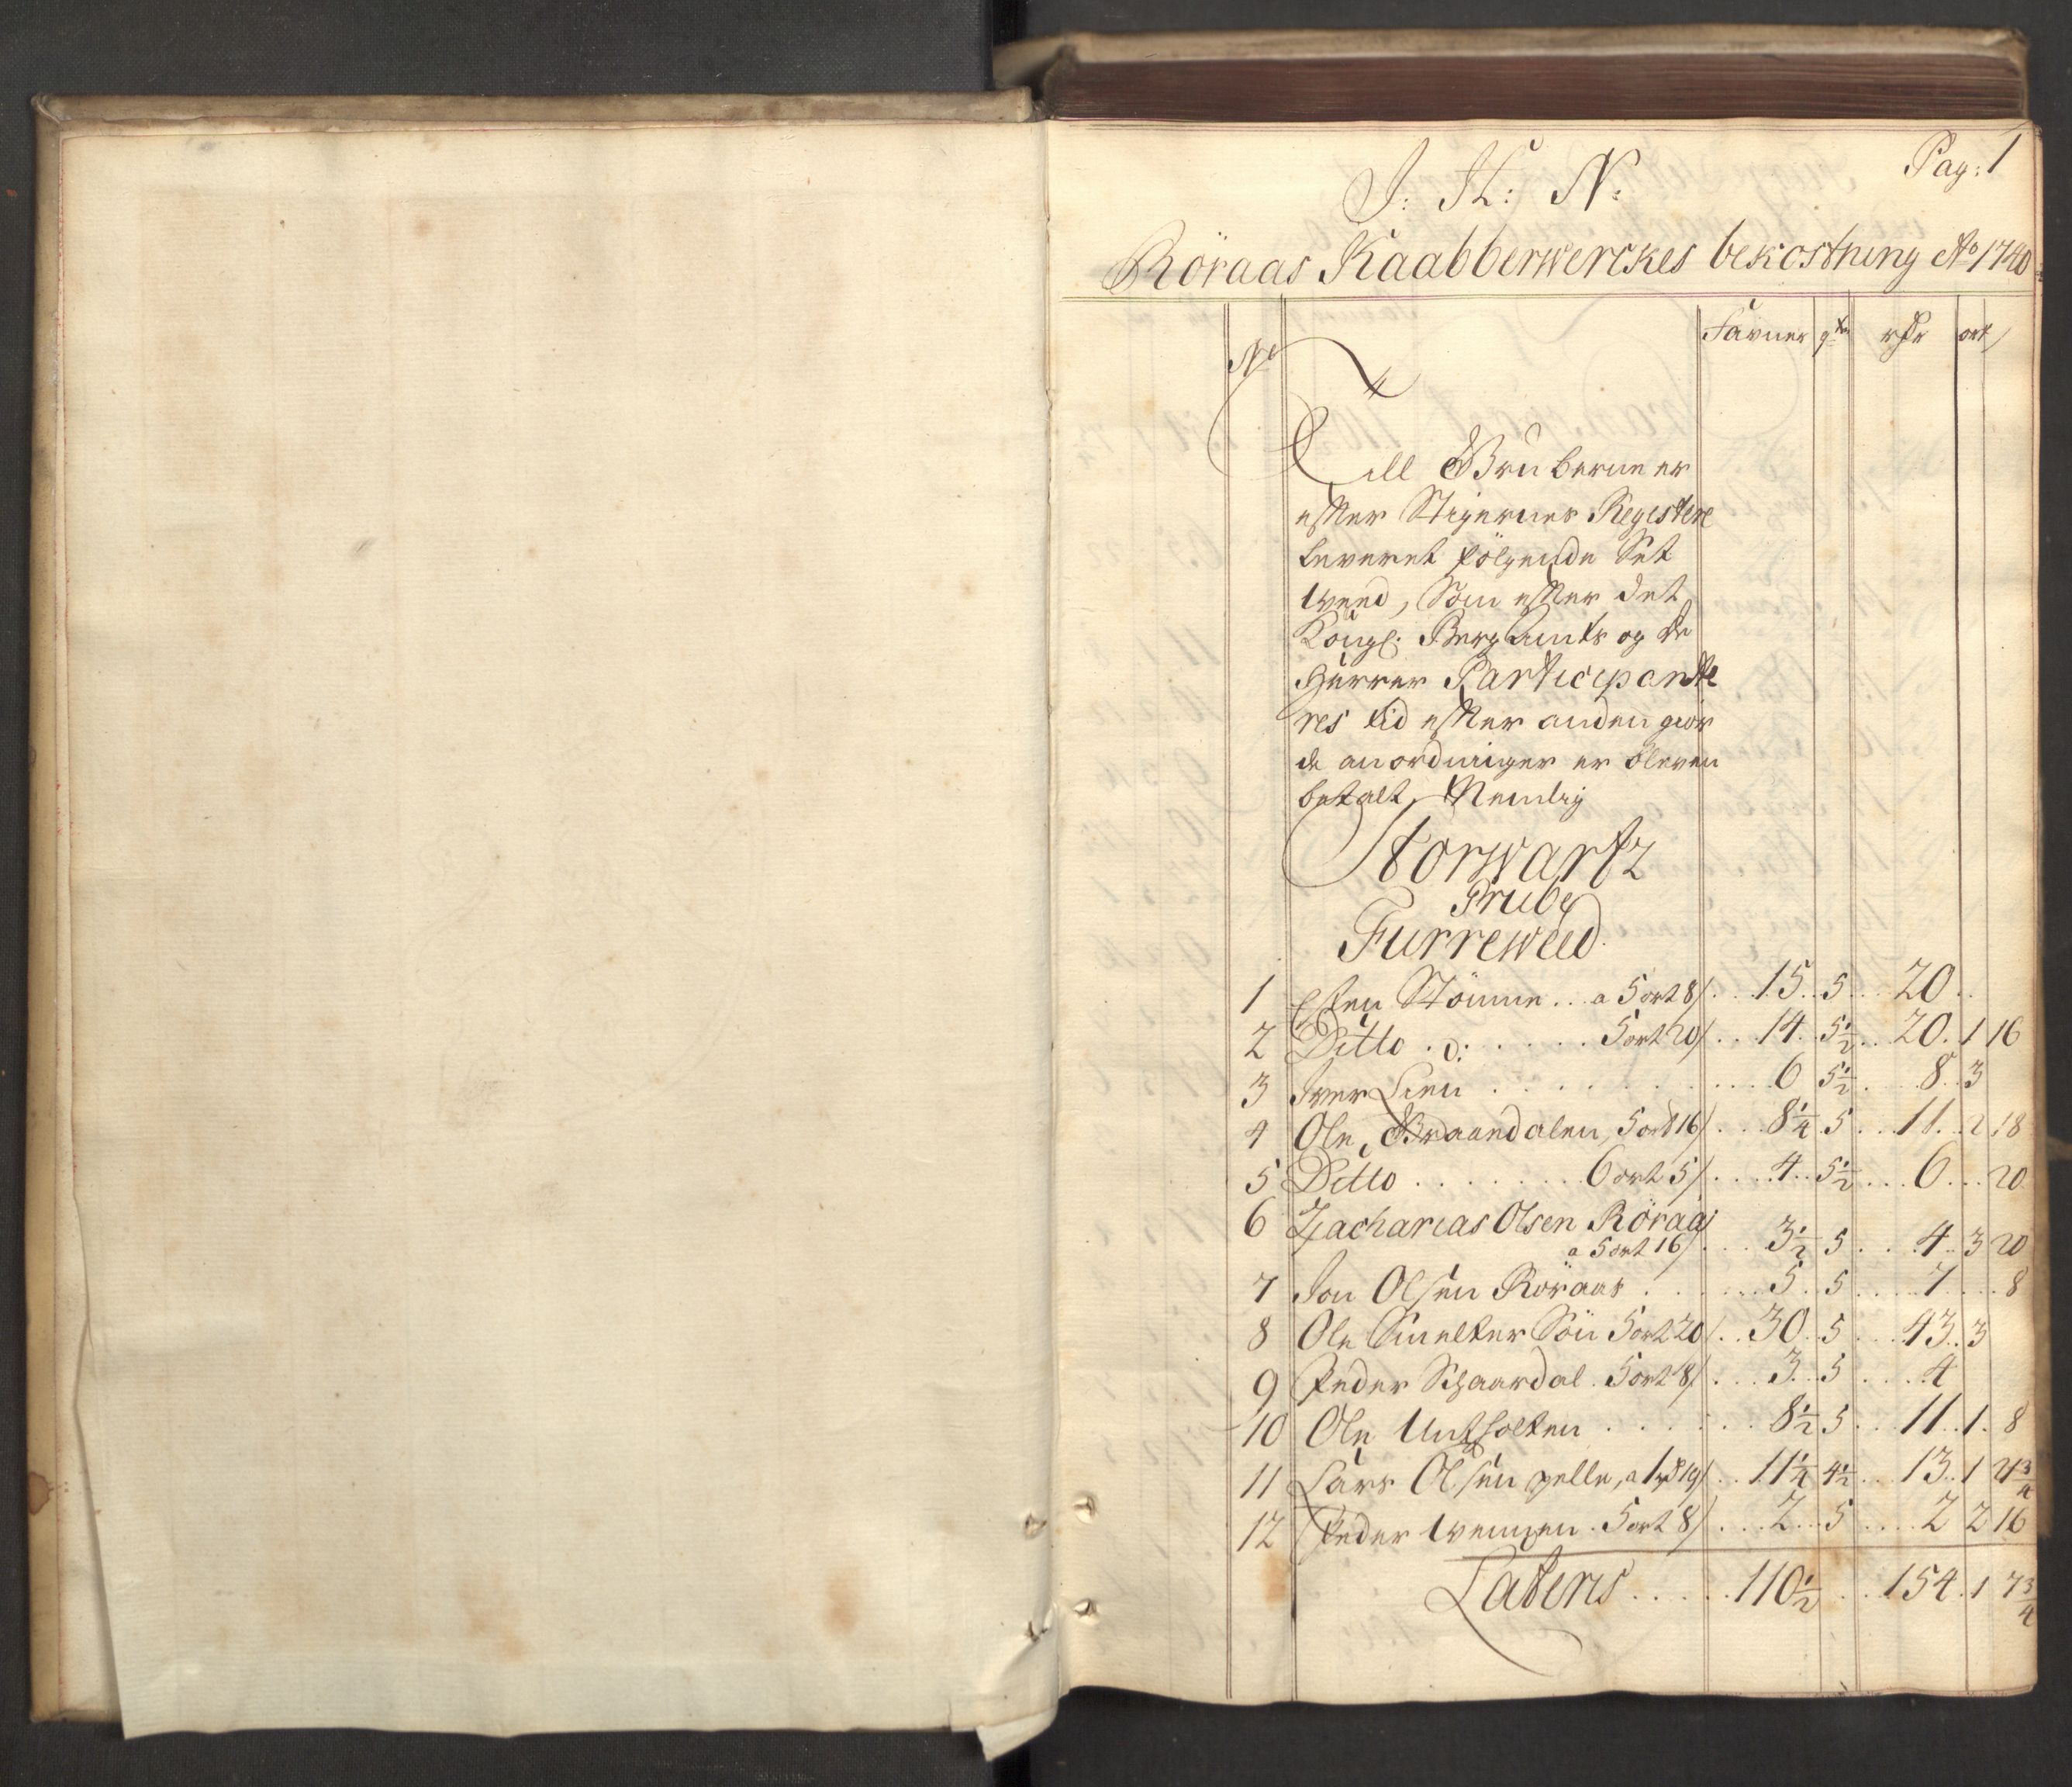 Pag: 1
J: H: N:
Röraas Kaabberwerckes bekostning Ao 1740
No
Favner qtr rdr ort
Till Gruberne er
efter Stigernes Registere
leveret følgende Set
weed, Som efter det
Kongl: BergAmts og de
Herrer Participante
res tid efter anden gior
de anordninger er bleven
betalt, Nemlig
Storwartz
Grube
Furreweed
1 Esten Stömne .. a 5 ort 8 / 15 5 20
2 Ditto . d: 5 ort 20 / 14 5 1/2 20 1 16
3 Iver Lien 6 5 1/2 8 3
4 Ole Braandalen, 5 ort 16 / 8 1/4 5 11 2 18
5 Ditto 6 ort 5 / 4 5 1/2 6 20
6 Zacharias Olsen Röraas
a 5 ort 16 / 3 1/2 5 4 3 20
7 Jon Olsen Röraas 5 5 7 8
8 Ole Smelter Søn 5 ort 20 / 30 5 43 3
9 Peder Schaardal . 5 ort 8 / 3 5 4
10 Ole 8 1/2 5 11 1 8
11 Lars Olsen gelle, a 1 rd 19 / 11 1/4 4 1/2 13 1 21 3/4
12 Peder 5 ort 8 / 2 5 2 2 16
Lateris 110 1/2 154 1 7 3/4